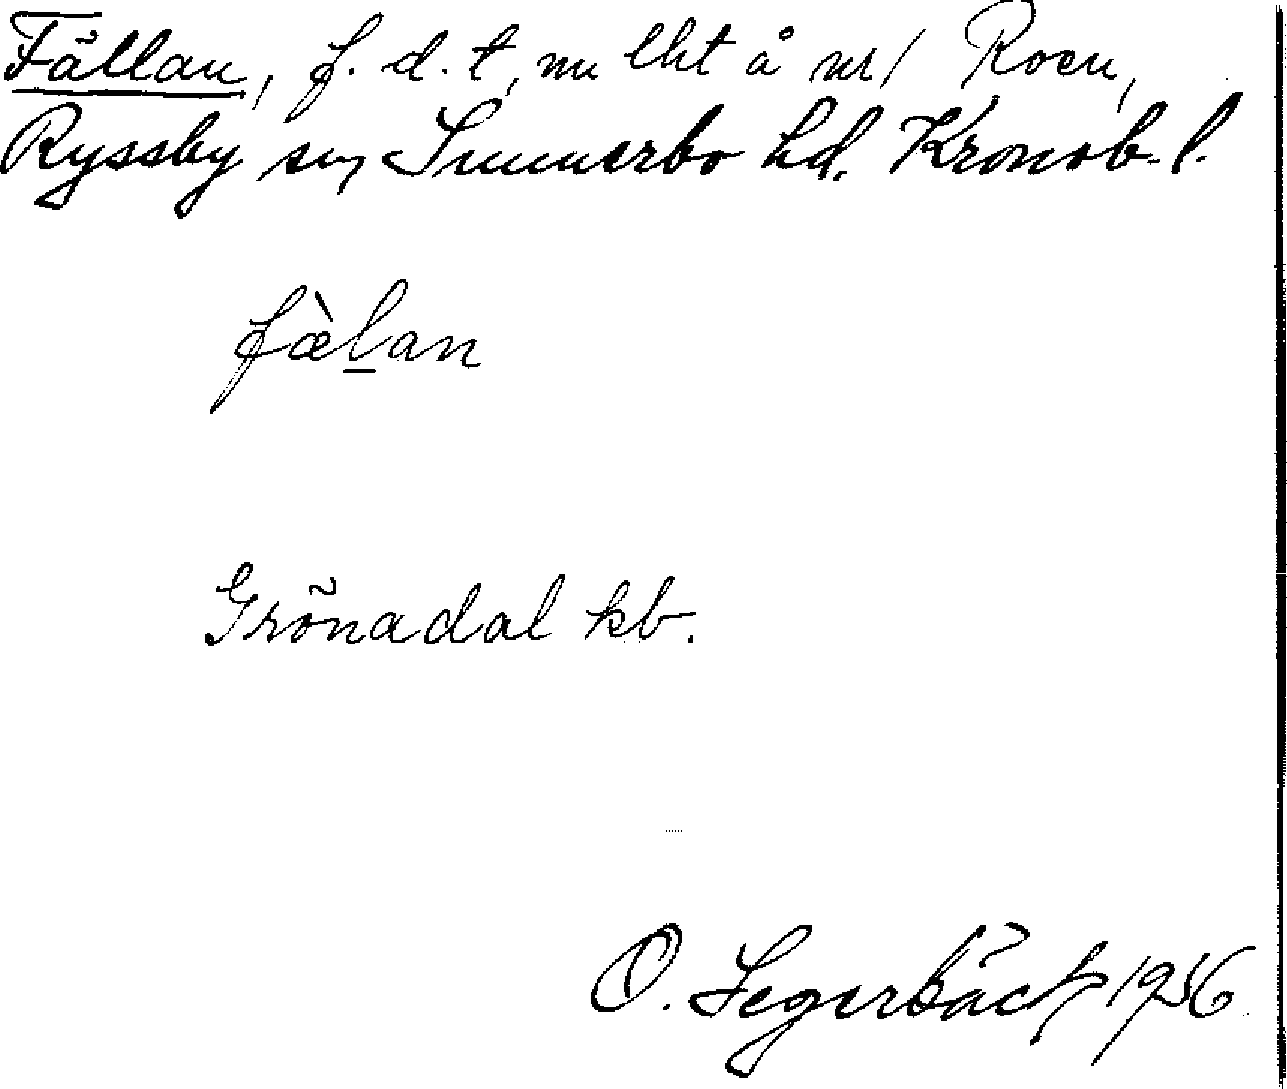 Fällan, f. d. t, nu lht å nr 1 Roen,
Ryssby sn, Sunnerbo hd. Kronob. l.
fæ̀l̲an
Grönadal kb.
O. Segerbäck 1936